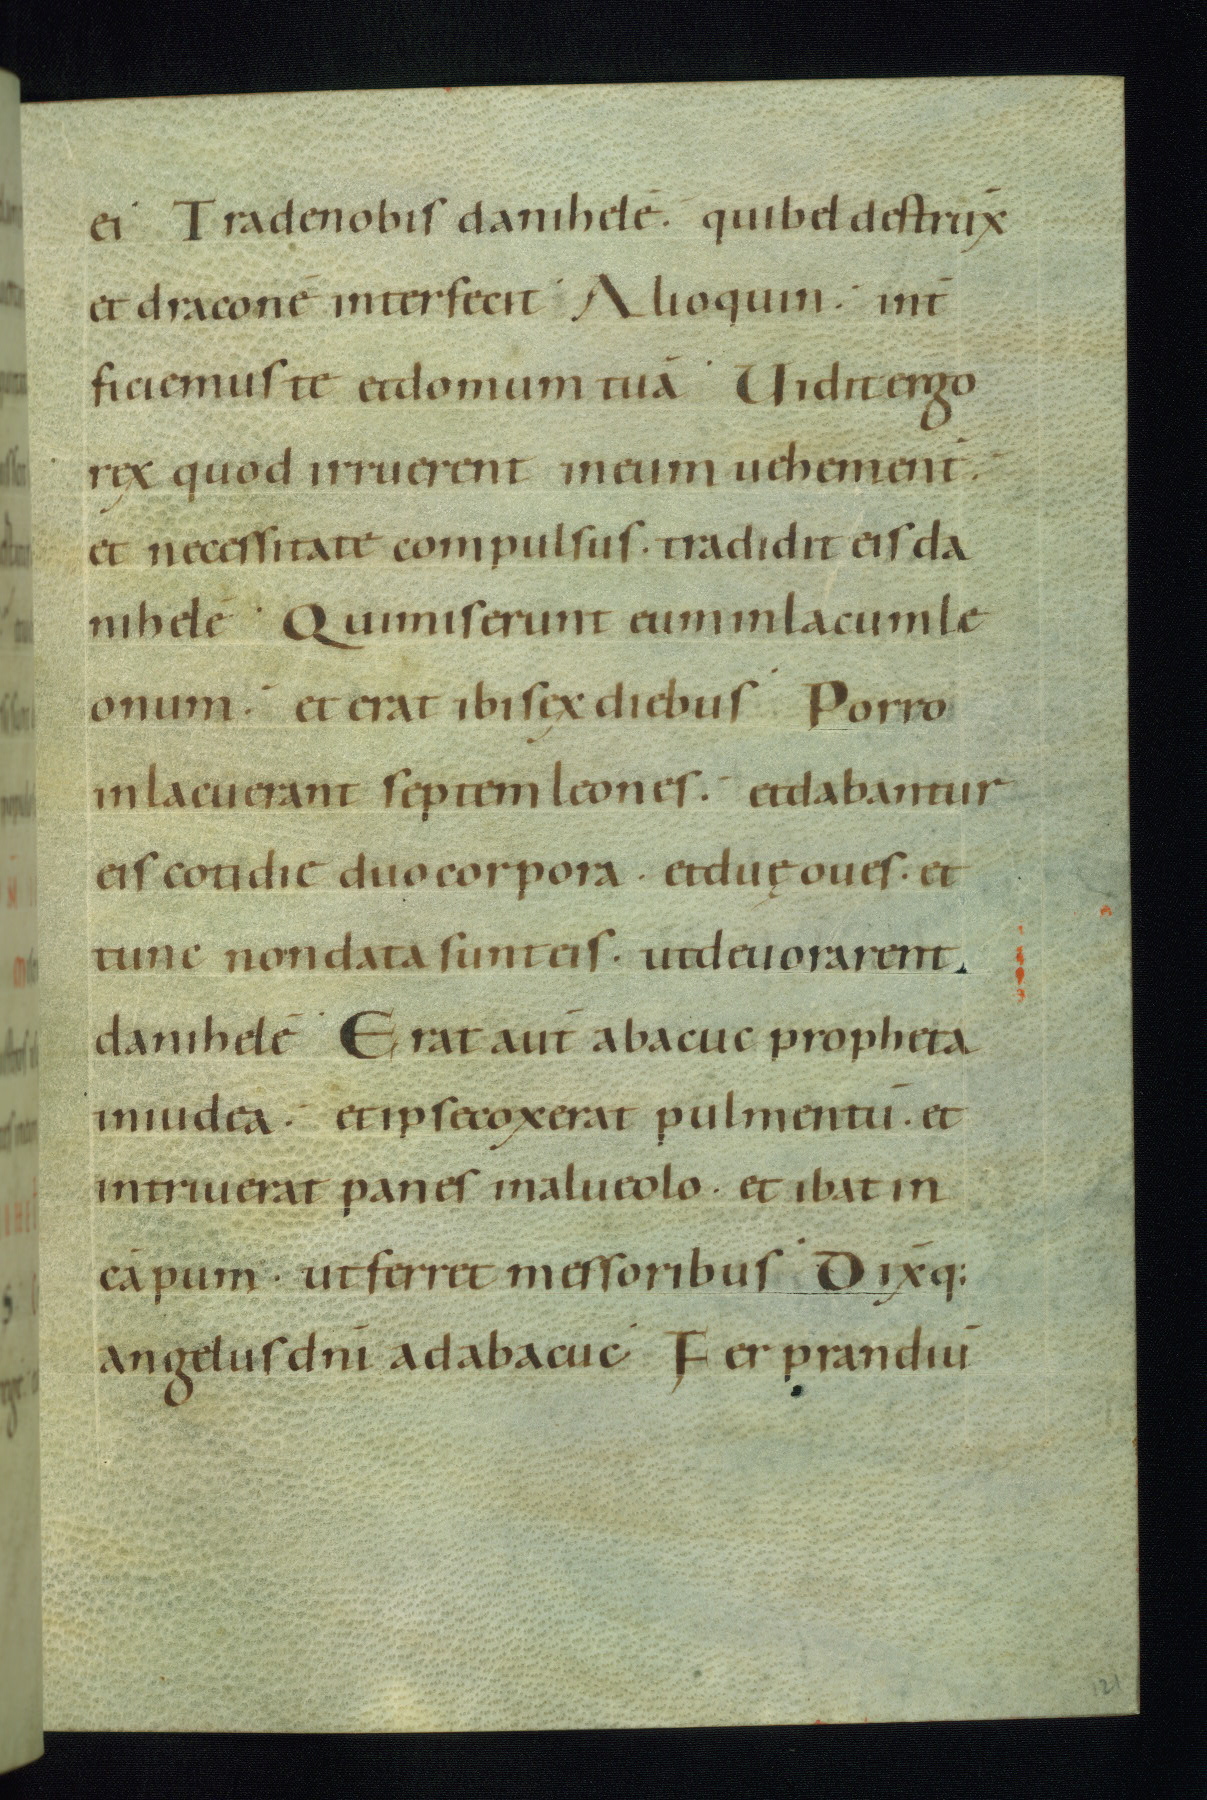 ei Trade nobis danihelē. qui bel destrūx
et draconē interfecit Alioquin. int̄
ficiemus te et domum tuā Uidit ergo
rex quod irruerent in eum uehement̄.
et necessitate compulsus. tradidit eis da
nihelē Qui miserunt eum in lacum le
onum. et erat ibi sex diebus Porro
in lacu erant septem leones. et dabantur
eis cotidie duo corpora. et duę oues. et
tunc non data sunt eis. ut deuorarent
danihelē Erat aut̄ abacuc propheta
in iudea. et ipse coxerat pulmentū. et
intriuerat panes in alueolo. et ibat in
cāpum. ut ferret messoribus Dix̄q;
angelus dn̄i ad abacuc Fer prandiū
121